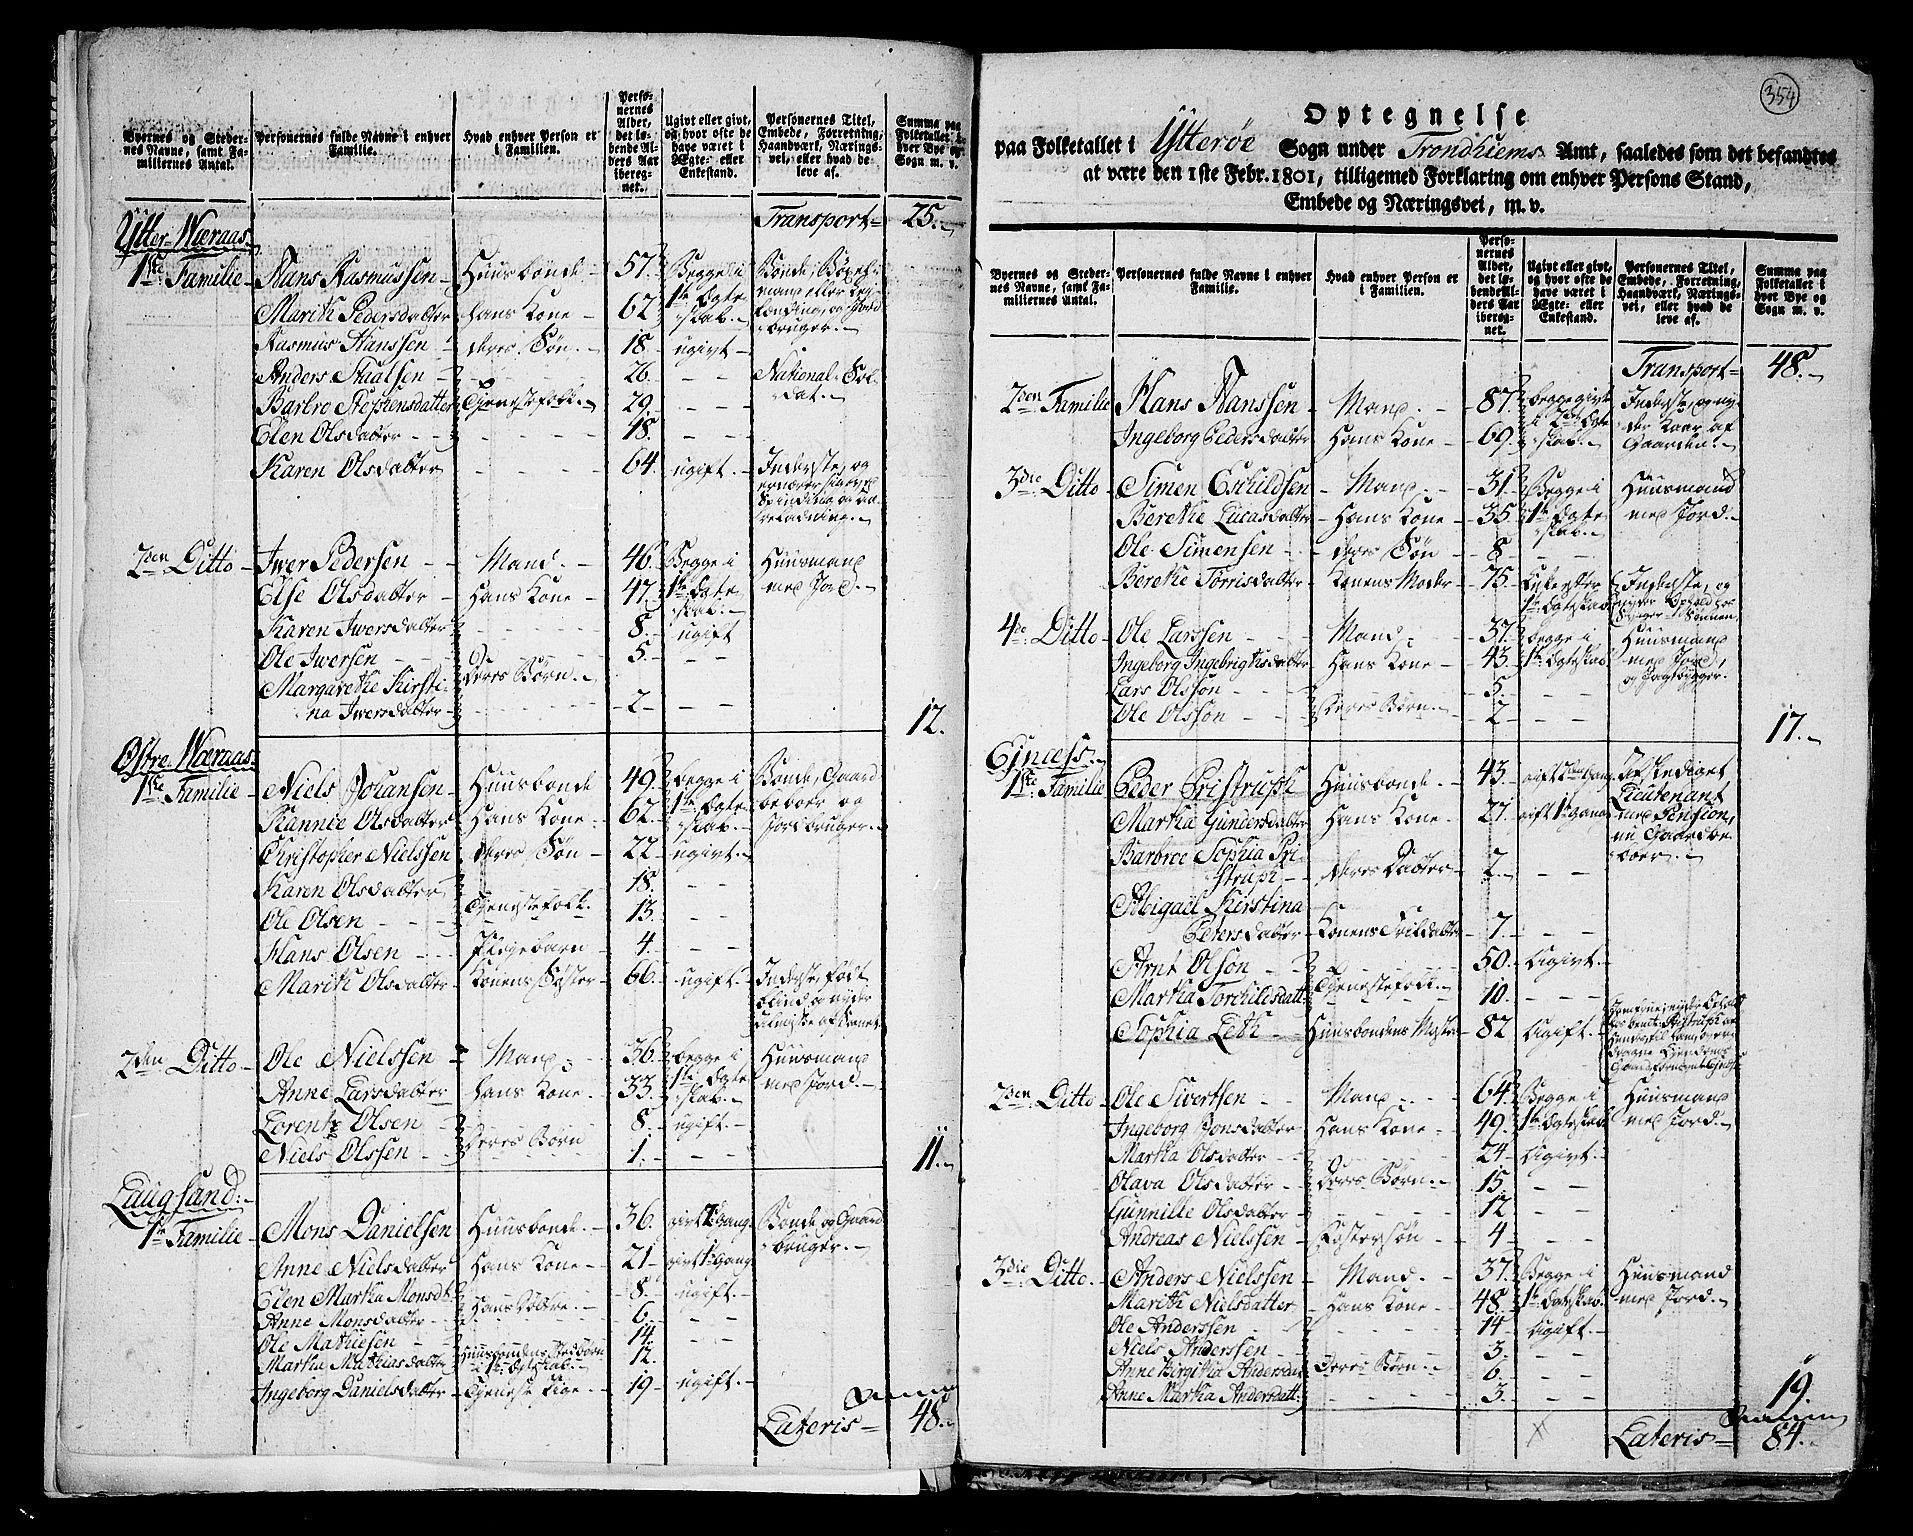 Byernes og Steder- nes Navne, samt Fa- miliernes Antal.
Personernes fulde Navne i enhver Familie.
Hvad enhver Person er i Familien.
Perso- nernes Alder, det lø- bende Al- ders Aar ibereg- net.
Ugivt eller givt, og hvor ofte de have været i Ægte- eller Enkestand.
Personernes Titel, Embede, Forretning, Haandværk, Nærings- vei, eller hvad de leve af.
Summa paa Folketallet i hver Bye og Sogn m. v.
Transport= 25.
Ytter-Næraas.
1ste Familie Hans Rasmussen Huusbonde 57. Begge i 1te Ægte- skab.
Marith Pedersdatter hans Kone 62
Rasmus Hanssen deres Søn 18. ugivt
Anders Staalsen 26. - - National-Sol- dat.
Barbro Steffensdatter Tjenestefolk 29. - -
Elen Olsdatter 18. - -
Karen Olsdatter 64. ugift. Inderste, og
2den Ditto Iwer Pedersen Mand. 46. Begge i 1te Ægte skab. Huusmand med Jord.
Else Olsdatter Hans Kone 47.
Karen Iwersdatter 8. ugift
Ole Iwersen Deres Børn. 5. - -
Margarethe Kirsti- na Iwersdatter 2 - - 12.
Østre-Næraas.
1ste Familie Niels Johansen Huusbonde 49. begge i 1te Ægte skab. Bonde, Gaard beboer og Jordbruger.
Rannie Olsdatter Hans Kone 62.
Christopher Nielssen deres Søn 22 ugivt
Karen Olsdatter Tjenestefolk. 18. - -
Ole Olsen 13. - -
Hans Olsen Pleiebarn 4. - -
Marith Olsdatter Konens Søster 66. ugift. Inderste, født blind og nyder
2den Ditto Ole Nielssen Mand 36. begge i 1te Ægte skab. Huusmand med Jord.
Anne Larsdatter hans Kone 33.
Lorentz Olsen Deres Børn 8. ugift.
Niels Olssen 1. - - 11.
Laugsand.
1te Familie Mons Danielsen Huusbonde. 36. givt gang. Bonde og Gaard bruger.
Anne Nielsdatter Hans Kone 21 givt 1te Gang
Elen Martha Monsdt. Hans Døttre. 8. ugift.
Anne Monsdatter 6. - -
Ole Mathiesen Huusbondens Stedbørn 14. - -
Martha Mathiasdatter i 1te Ægteskab 12.
Ingeborg Danielsdatter Tjeneste Pige. 19 ugift.
Lateris= 48.
354
Optegnelse
paa Folketallet i Ytterøe Sogn under Trondhiems Amt, saaledes som det befandtes
at være den 1ste Febr. 1801, tilligemed Forklaring om enhver Persons Stand,
Embede og Næringsvei, m. v.
Byernes og Steder- nes Navne, samt Fa- miliernes Antal.
Personernes fulde Navne i enhver Familie.
Hvad enhver Person er i Familien.
Perso- nernes Alder, det lø- bende Al- ders Aar ibereg- net.
Ugivt eller givt, og hvor ofte de have været i Ægte- eller Enkestand.
Personernes Titel, Embede, Forretning, Haandværk, Nærings- vei, eller hvad de leve af.
Summa paa Folketallet i hver Bye og Sogn m. v.
Transport= 48.
2den Familie Hans Hanssen Mand. 87. begge givt i 2det Ægte skab. Inderste, og ny- der Kaar af Gaarden.
Ingeborg Pedersdatter Hans Kone 69.
3die Ditto Simen Eschildsen Mand. 31. Begge i 1te Ægte skab. Huusmand med Jord.
Berethe Lucasdatter Hans Kone 35.
Ole Simensen deres Søn 8. - -
Berethe Torrisdatter Konens Moder 75. Enke efter 1te Ægteskab Inderste, og
4de Ditto Ole Larssen Mand 37. begge i 1te Ægteskab Huusmand med Jord,
Ingeborg Ingebrigtsdatter Hans Kone 43.
Lars Olsson Deres Børn. 5. - -
Ole Olsson 2 - - 17.
1ste Familie Peder Pristrupf Huusbonde 43. gift 2den Gang Afskediget Lieutenant med Pension, nu Gaardbe- boer.
Martha Gundersdatter Hans Kone 27. gift 1te gang
Barbroe Sophia Pri- strupf deres Datter 2. - -
Abigael Kirstina Petersdatter Konens 7. - -
Arnt Olson Tjenestefolk. 50. Ugivt.
Martha Torchildsdatt. 10. - -
Sophia Leth Huusbondens Moster 82 Ugift.
2den Ditto Ole Sivertsen Mand 64. Begge i 1te Ægteskab Huusmand med Jord.
Ingeborg Jonsdatter Hans Kone 49.
Martha Olsdatter 24 Ugivt.
Olava Olsdatter Deres Børn. 15. - -
Gunnille Olsdatter 12 - -
Andreas Nielssen Fostersøn 4 - -
3die Ditto Anders Nielssen Mand. 37. Begge i 1te Ægteskab. Huusmand med Jord.
Marith Nielsdatter Hans Kone 48.
Ole Anderssen 14 Ugift.
Niels Anderssen 3. - -
Anne Birgitha Andersdat. Deres Børn. 6. - -
Anne Martha Andersdatt. 3. - - 19.
Lateris= 84.